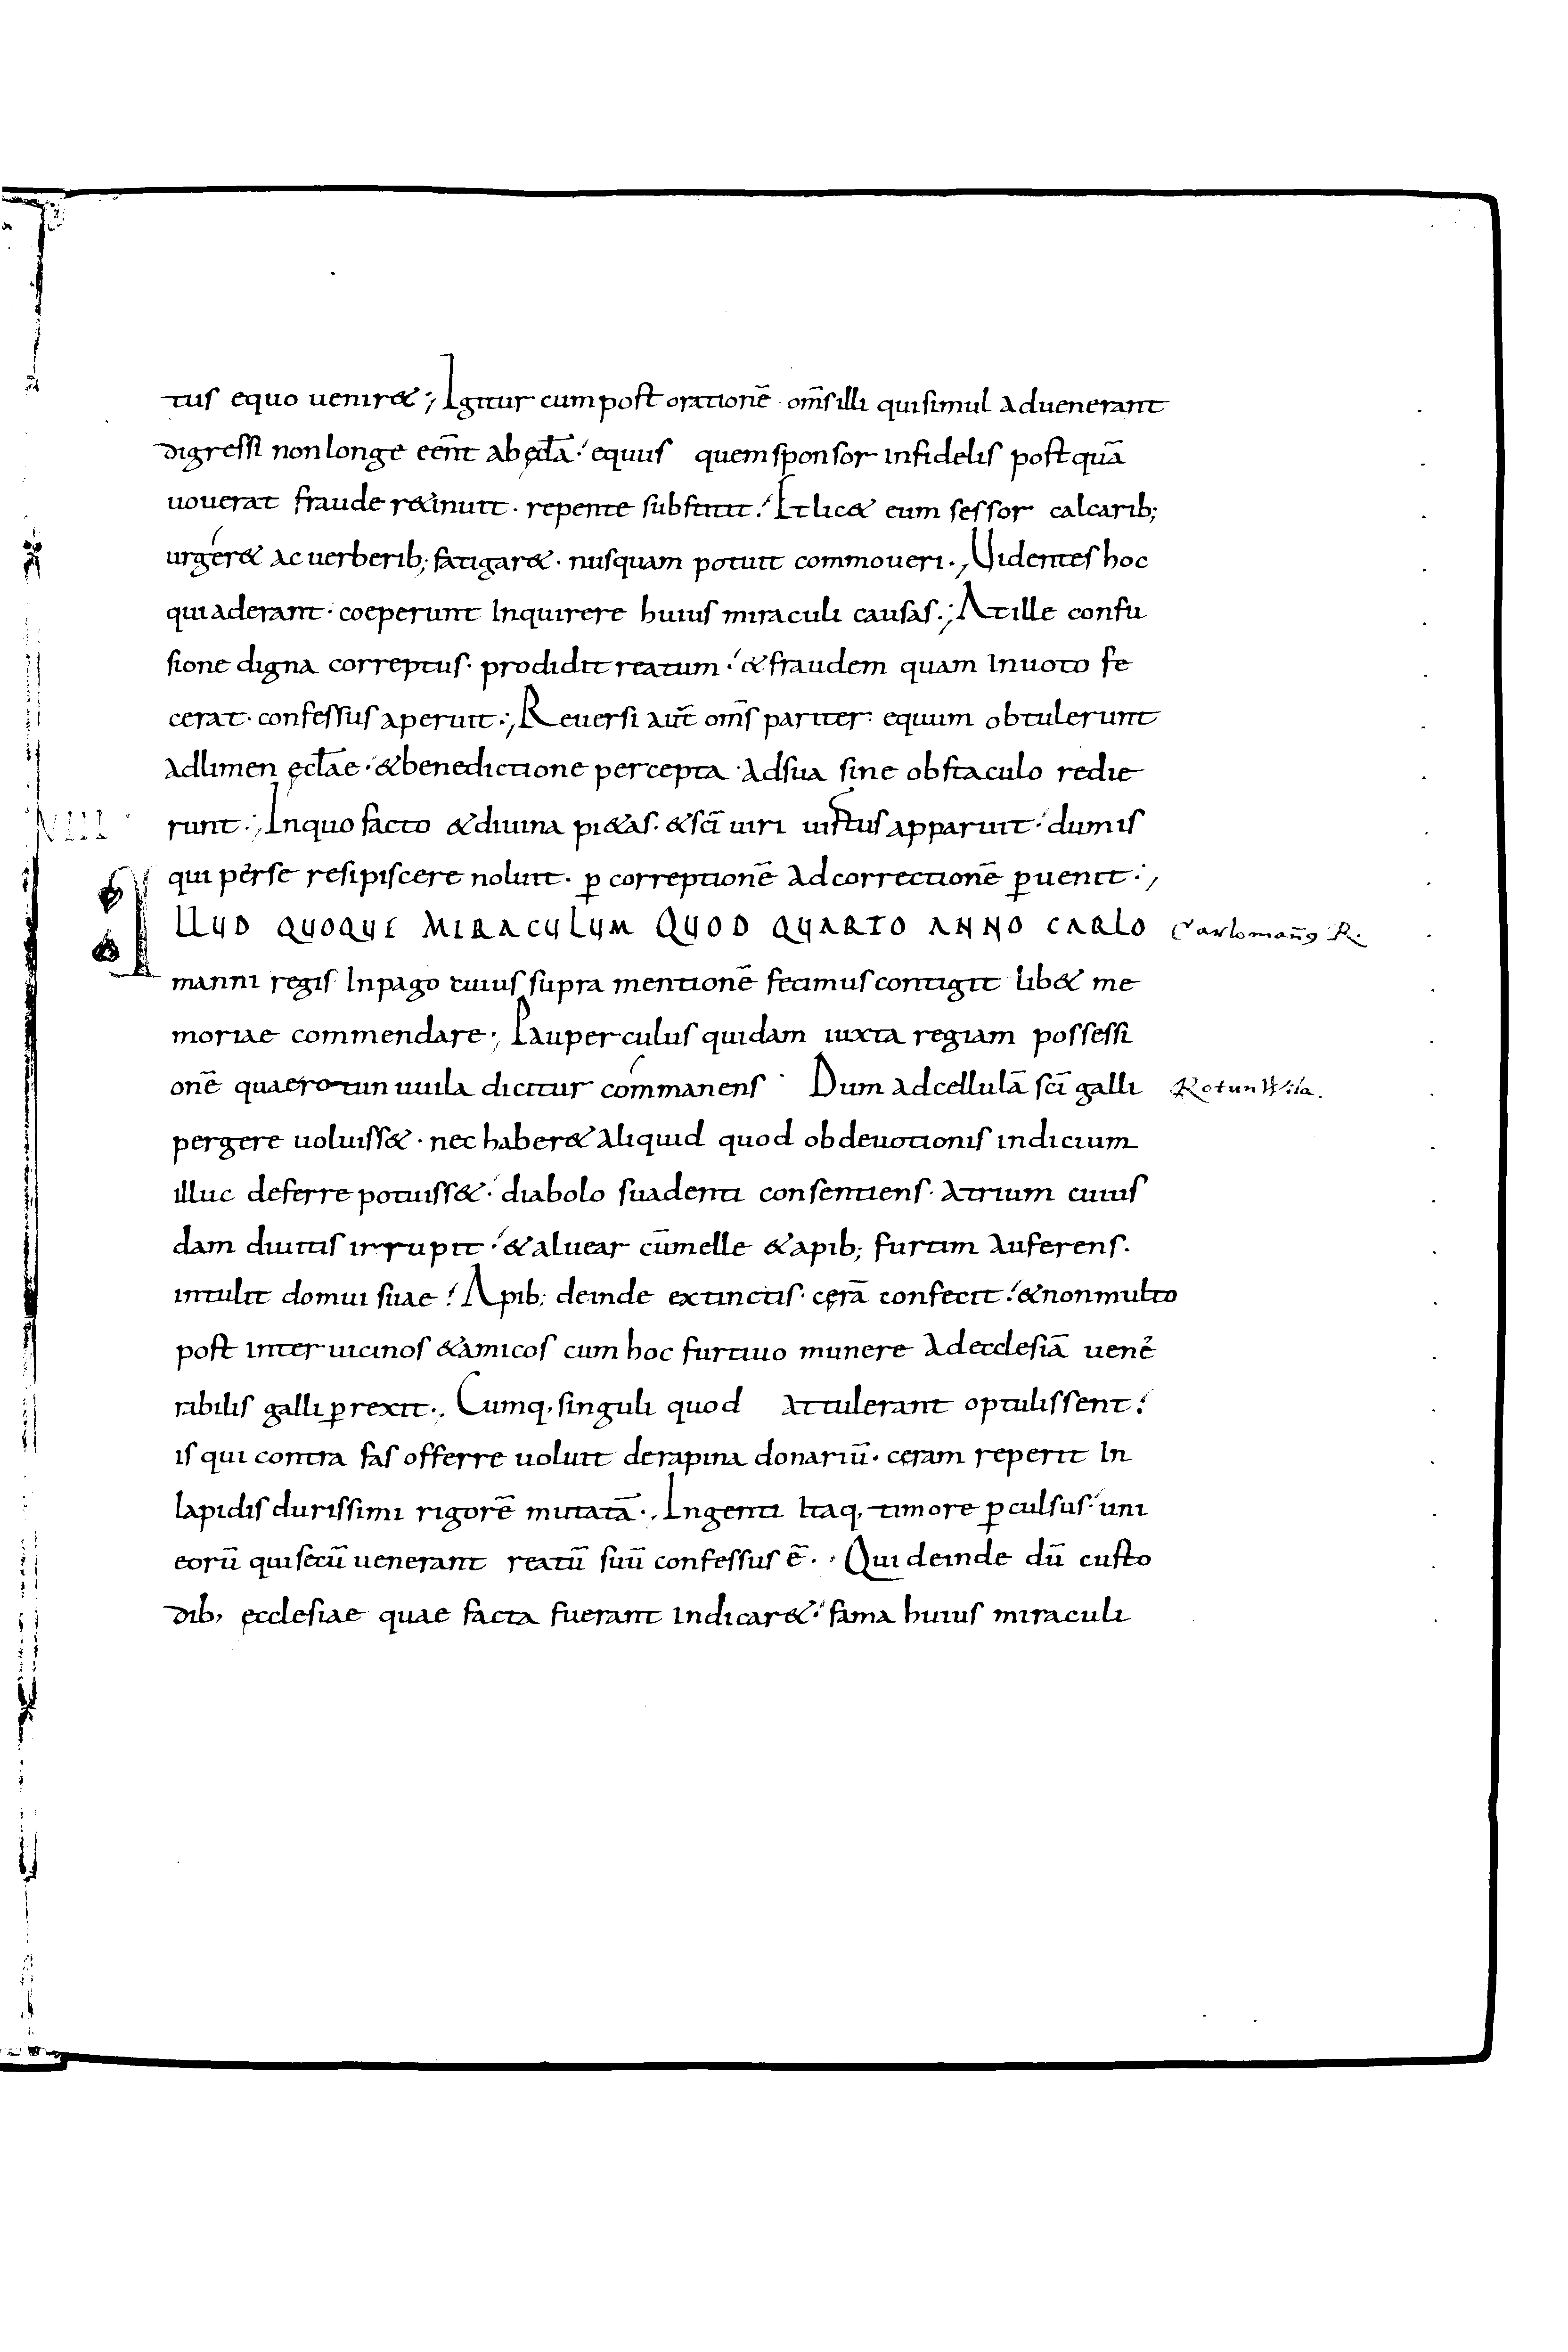 tus equo uenir&; Igitur cum post orationē om̄s illi qui simul aduenerant
digressi non longe eēnt ab ęcl̄a· equus quem sponsor infidelis postquā
uouerat fraude r&inuit· repente subfitit! Et lic& eum sessor calcarib;
urger& ac uerberib; fatigar&· nusquam potuit commoueri·; Uidentes hoc
qui aderant· coeperunt Inquirere huius miraculi causas·; At ille confu
sione digna correptus· prodidit reatum· & fraudem quam In uoto fe
cerat· confessus aperuit·; Reuersi aut̄ om̄s pariter· equum obtulerunt
ad limen ęcl̄ae· & benedictione percepta· ad sua sine obstaculo redie
VIII
runt·; In quo facto & diuina pi&as· & sc̄i uiri uirtus apparuit· dum is
qui per se resipiscere noluit· ꝑ correptionē ad correctionē ꝑuenit·;
ILLUD QUOQUE MIRACULUM QUOD QUARTO ANNO CARLO
Carlomañ9 R.
manni regis In pago cuius supra mentionē fecimus contigit lib& me
moriae commendare·; Pauperculus quidam iuxta regiam possessi
onē quae rotun uuila dicitur commanens· Dum ad cellulā sc̄i galli
RotunWila.
pergere uoluiss&· nec haber& aliquid quod ob deuotionis indicium
illuc deferre potuiss&· diabolo suadenti consentiens· atrium cuius
dam diuitis irrupit· & aluear cū melle & apib; furtim auferens·
intulit domui suae! Apib; deinde extinctis· cęrā confecit! & non multo
post inter uicinos & amicos cum hoc furtiuo munere ad ecclesiā uene
rabilis galli ꝑrexit·, Cumq, singuli quod attulerant optulissent!
is qui contra fas offerre uoluit de rapina donariū· cęram reperit In
lapidis durissimi rigorē mutatā·, Ingenti Itaq, timore ꝑculsus· uni
eorū qui secū uenerant reatū suū confessus ē·, Qui deinde dū custo
dib, ęcclesiae quae facta fuerant indicar&· fama huius miraculi